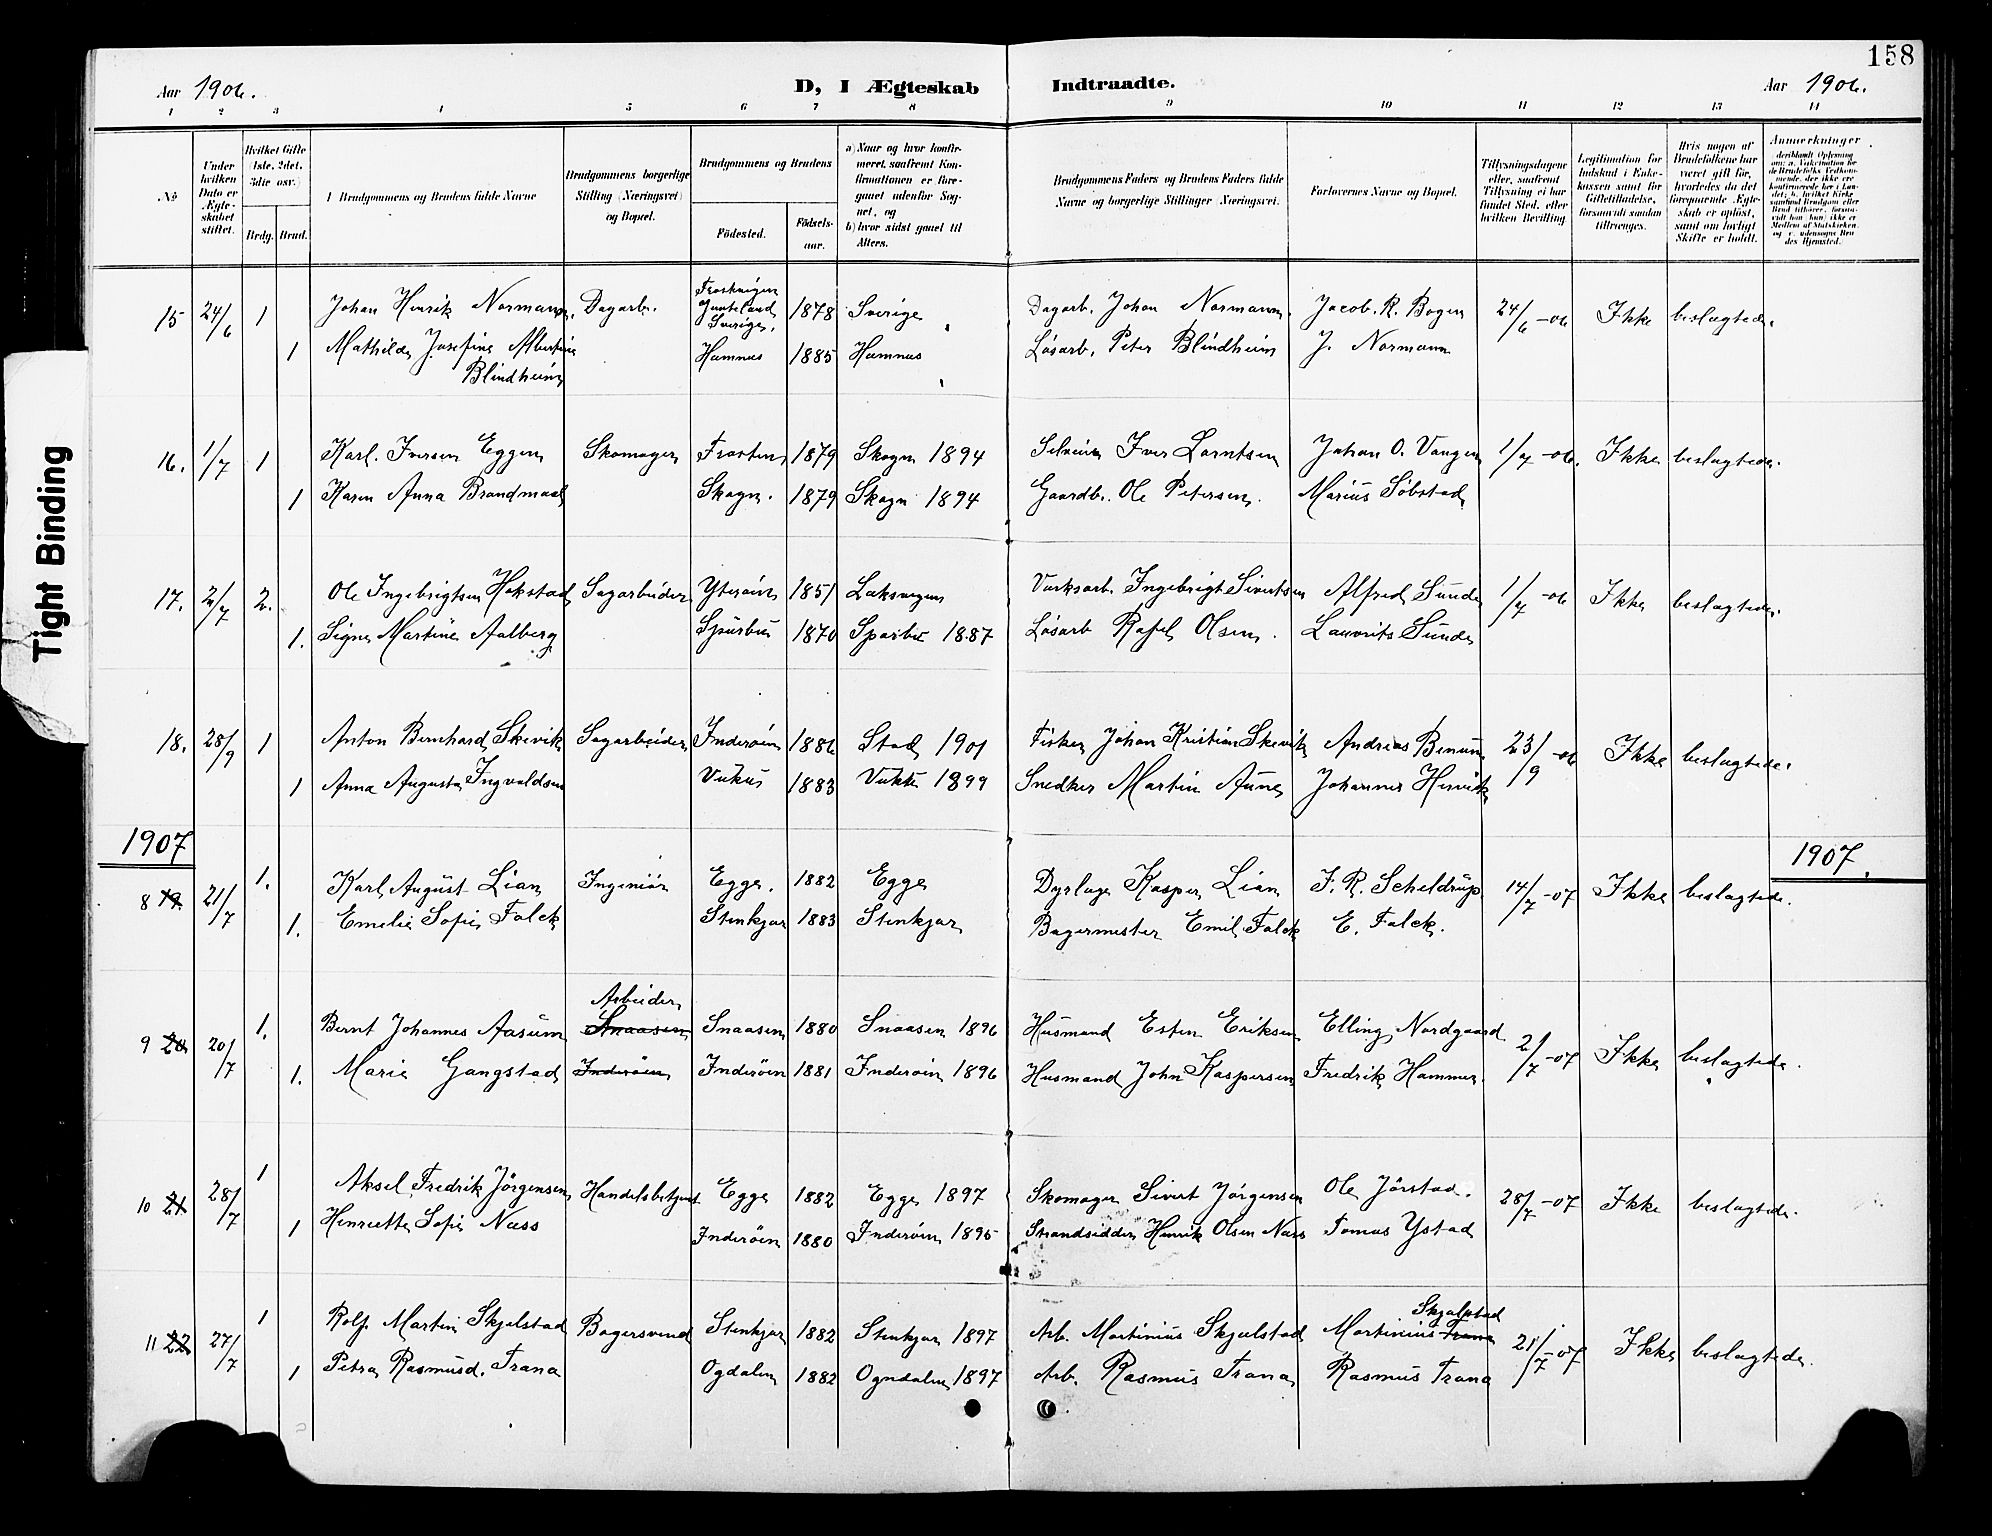 158
Aar 1906.
D, I Ægteskab Indtraadte.
Aar 1906.
1 2 3 4 5 6 7 8 9 10 11 12 13 14
No
Under hvilken Dato er Ægteskabet stiftet.
Hvilket Gifte (1ste, 2det, 3die osv.)
Brdg. Brud.
Brudgommens og Brudens fulde Navne
Brudgommens borgerlige Stilling (Næringsvei) og Bopæl.
Brudgommens og Brudens
Fødested.
Fødselsaar.
a) Naar og hvor konfirmeret, saafremt Konfirmationen er foregaaet udenfor Sognet, og
b) hvor sidst gaaet til Alters.
Brudgommens Faders og Brudens Faders fulde Navne og borgerlige Stillinger (Næringsvei.
Forlovernes Navne og Bopæl.
Tillysningsdagene eller, saafremt Tillysning ei har fundet Sted, efter hvilken Bevilling
Legitimation for Indskud i Enkekassen samt for Giftetilladelse, forsaavidt saadan tiltrænges.
Hvis nogen af Brudefolkene har været gift før, hvorledes da det foregaaende Ægteskab er opløst, samt om lovligt Skifte er holdt.
Anmerkninger
15 24/6 1 Johan Henrik Normann. Dagarb. Jämtland Sverige, 1878 Sverige Dagarb. Johan Normann. Jacob. R. Bogen 24/6 -06 Ikke beslægtede.
1 Mathilde Josefine Albertine Blindheim Hamnes 1885 Hamnes Løsarb. Peter Blindheim J. Normann
16. 1/7 1 Karl. Iversen Eggen Skomager Frosten 1879 Skogn 1894 Iver Lorntsen Johan O. Vangen 1/7 -06. Ikke beslægtede.
1 Karen Anna Brandmael Skogn. 1879 Skogn 1894 Gaardb. Ole Petersen. Marius Søbstad
17. 2/7 2. Ole Ingebrigtsen Hokstad Sagarbeider Yterøen 1851 Laksvigen Verksarb. Ingebrigt Sivertsen Alfred Sunde 1/7 -06 Ikke beslægtede.
1. Signe Martine Aalberg Sparbu 1870 Sparbu 1887 Løsarb Rafel Olsen. Lauorits Sunde
18. 28/9 1 Anton Bernhard Skevik Sagarbeider Inderøen 1886 Stod 1901 Fisker Johan Kristian Skevik Andreas Benum 23/9 -06 Ikke beslægtede.
1 Anna Augusta Ingvaldsen Vukus 1883 Vukku 1899 Snedker Martin Aune Johannes Henrik
1907
1907.
8 19 21/7 1. Karl August Lian Ingeniør Egge. 1882 Egge Dyrlæge Kasper Lian F. R. Scheldrup 14/7 -07 Ikke beslægtede.
1. Emelie Sofie Falck Stenkjær 1883 Stenkjær Bagermester Emil Falck E. Falck.
9 20 20/7 1. Bernt Johannes Aasum Arbeider Snaasen Snaasen 1880 Snaasen 1896 Husmand Esten Eriksen Elling Nordgaard 2/7 -07 Ikke beslægtede.
1. Marie Gangstad Inderøen Inderøen 1881 Inderøen 1896 Husmand John Kaspersen Fredrik Hammer.
10 21 28/7 1 Aksel Fredrik Jørgensen Handelsbetjent Egge 1882 Egge 1897 Skomager Sivert Jørgensen Ole Jørstad. 28/7 -07 Ikke beslægtede.
1 Henriette Sofie Næss Inderøen 1880 Inderøen 1895 Strandsidder Henrik Olsen Næss Tomas Ystad
11 22 27/7 1 Rolf Martin Skjelstad Bagersvend Stenkjær 1882 Stenkjær 1897 Arb. Martinius Skjelstad Martinius Trana Skjelstad 21/7 -07 Ikke beslægtede.
1 Petra Rasmusd. Trana Ogdalen 1882 Ogndalen 1897 Arb. Rasmus Trana Rasmus Trana
Tight Binding